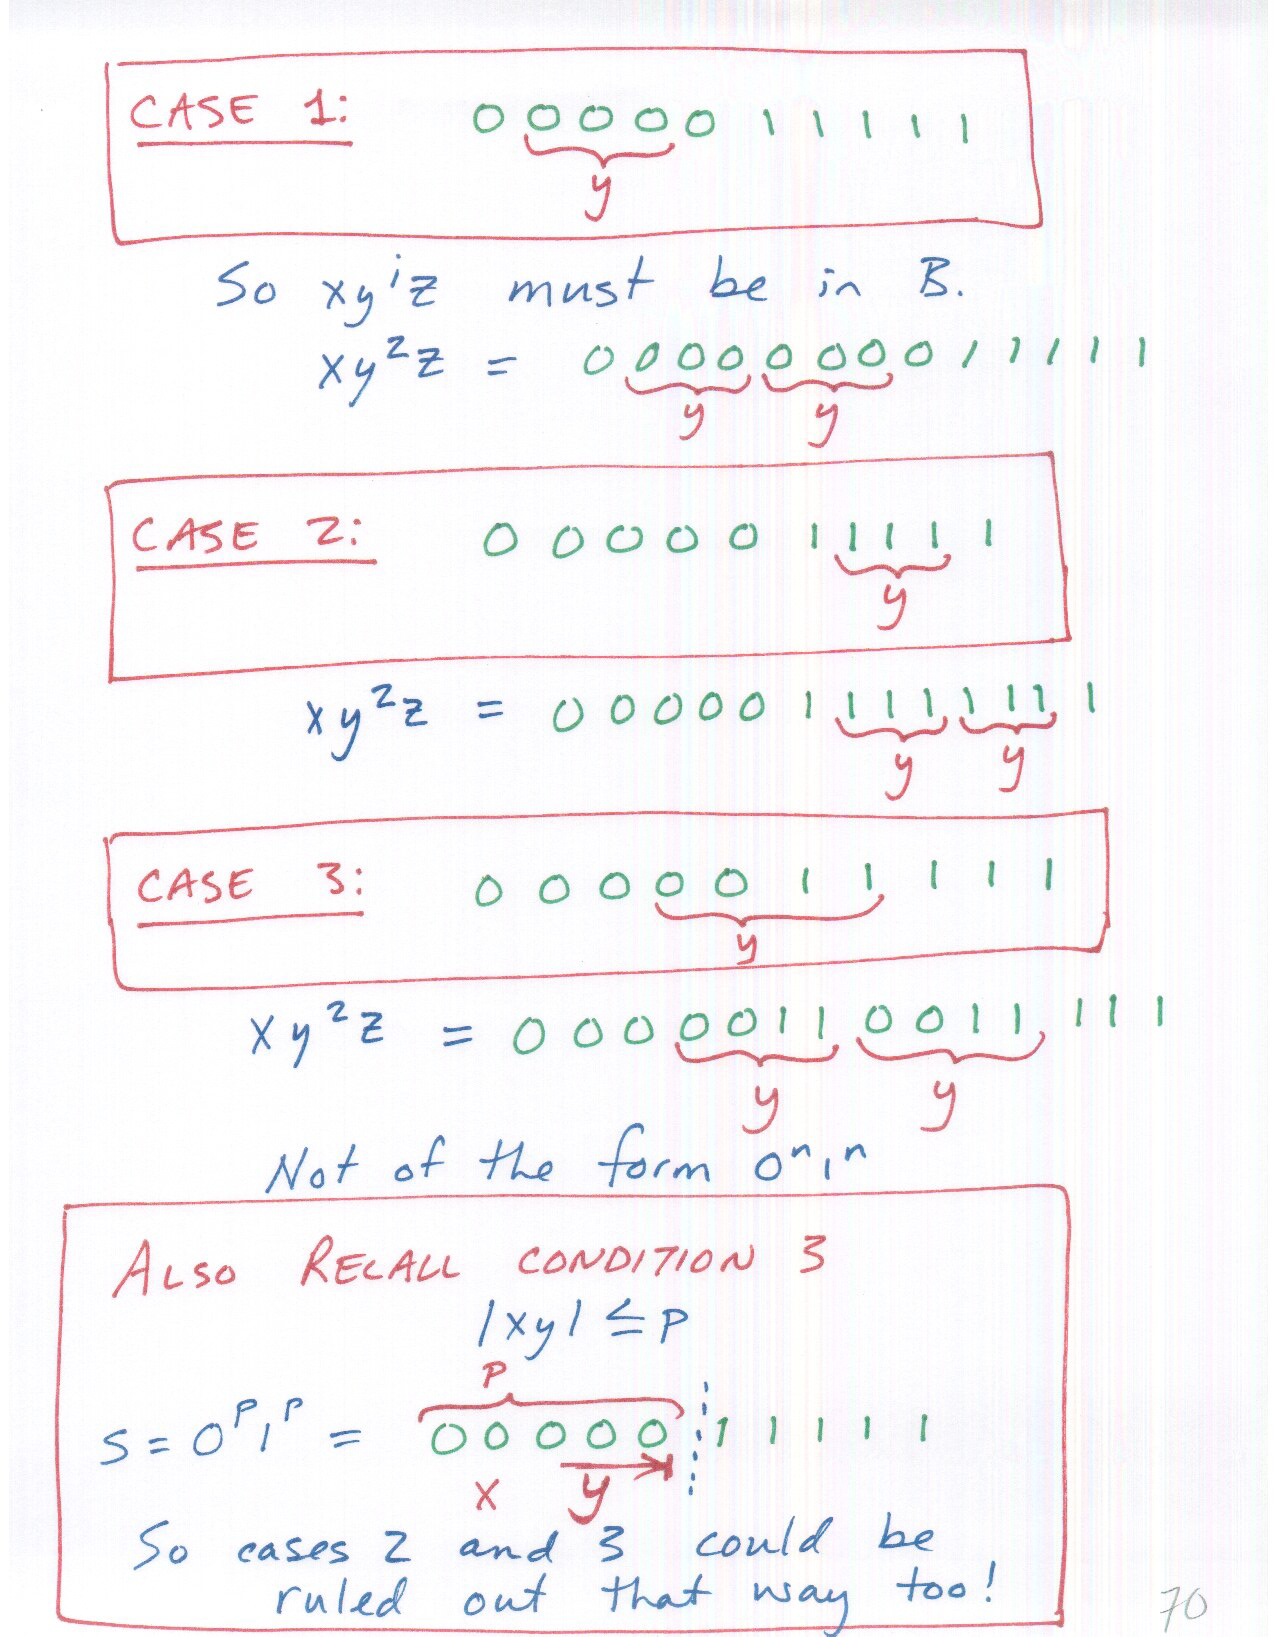 CASE 1: 0 0 0 0 0 1 1 1 1 1
y
So xyⁱz must be in B.
xy²z = 0 0 0 0 0 0 0 0 1 1 1 1 1
y y
CASE 2: 0 0 0 0 0 1 1 1 1 1
y
xy²z = 0 0 0 0 0 1 1 1 1 1 1 1 1
y y
CASE 3: 0 0 0 0 0 1 1 1 1 1
y
xy²z = 0 0 0 0 0 1 1 0 0 1 1 1 1 1
y y
Not of the form 0ⁿ1ⁿ
ALSO RECALL CONDITION 3
|xy| ≤ P
P
S = 0ᴾ1ᴾ = 0 0 0 0 0 1 1 1 1 1
x y
So cases 2 and 3 could be
ruled out that way too!
70